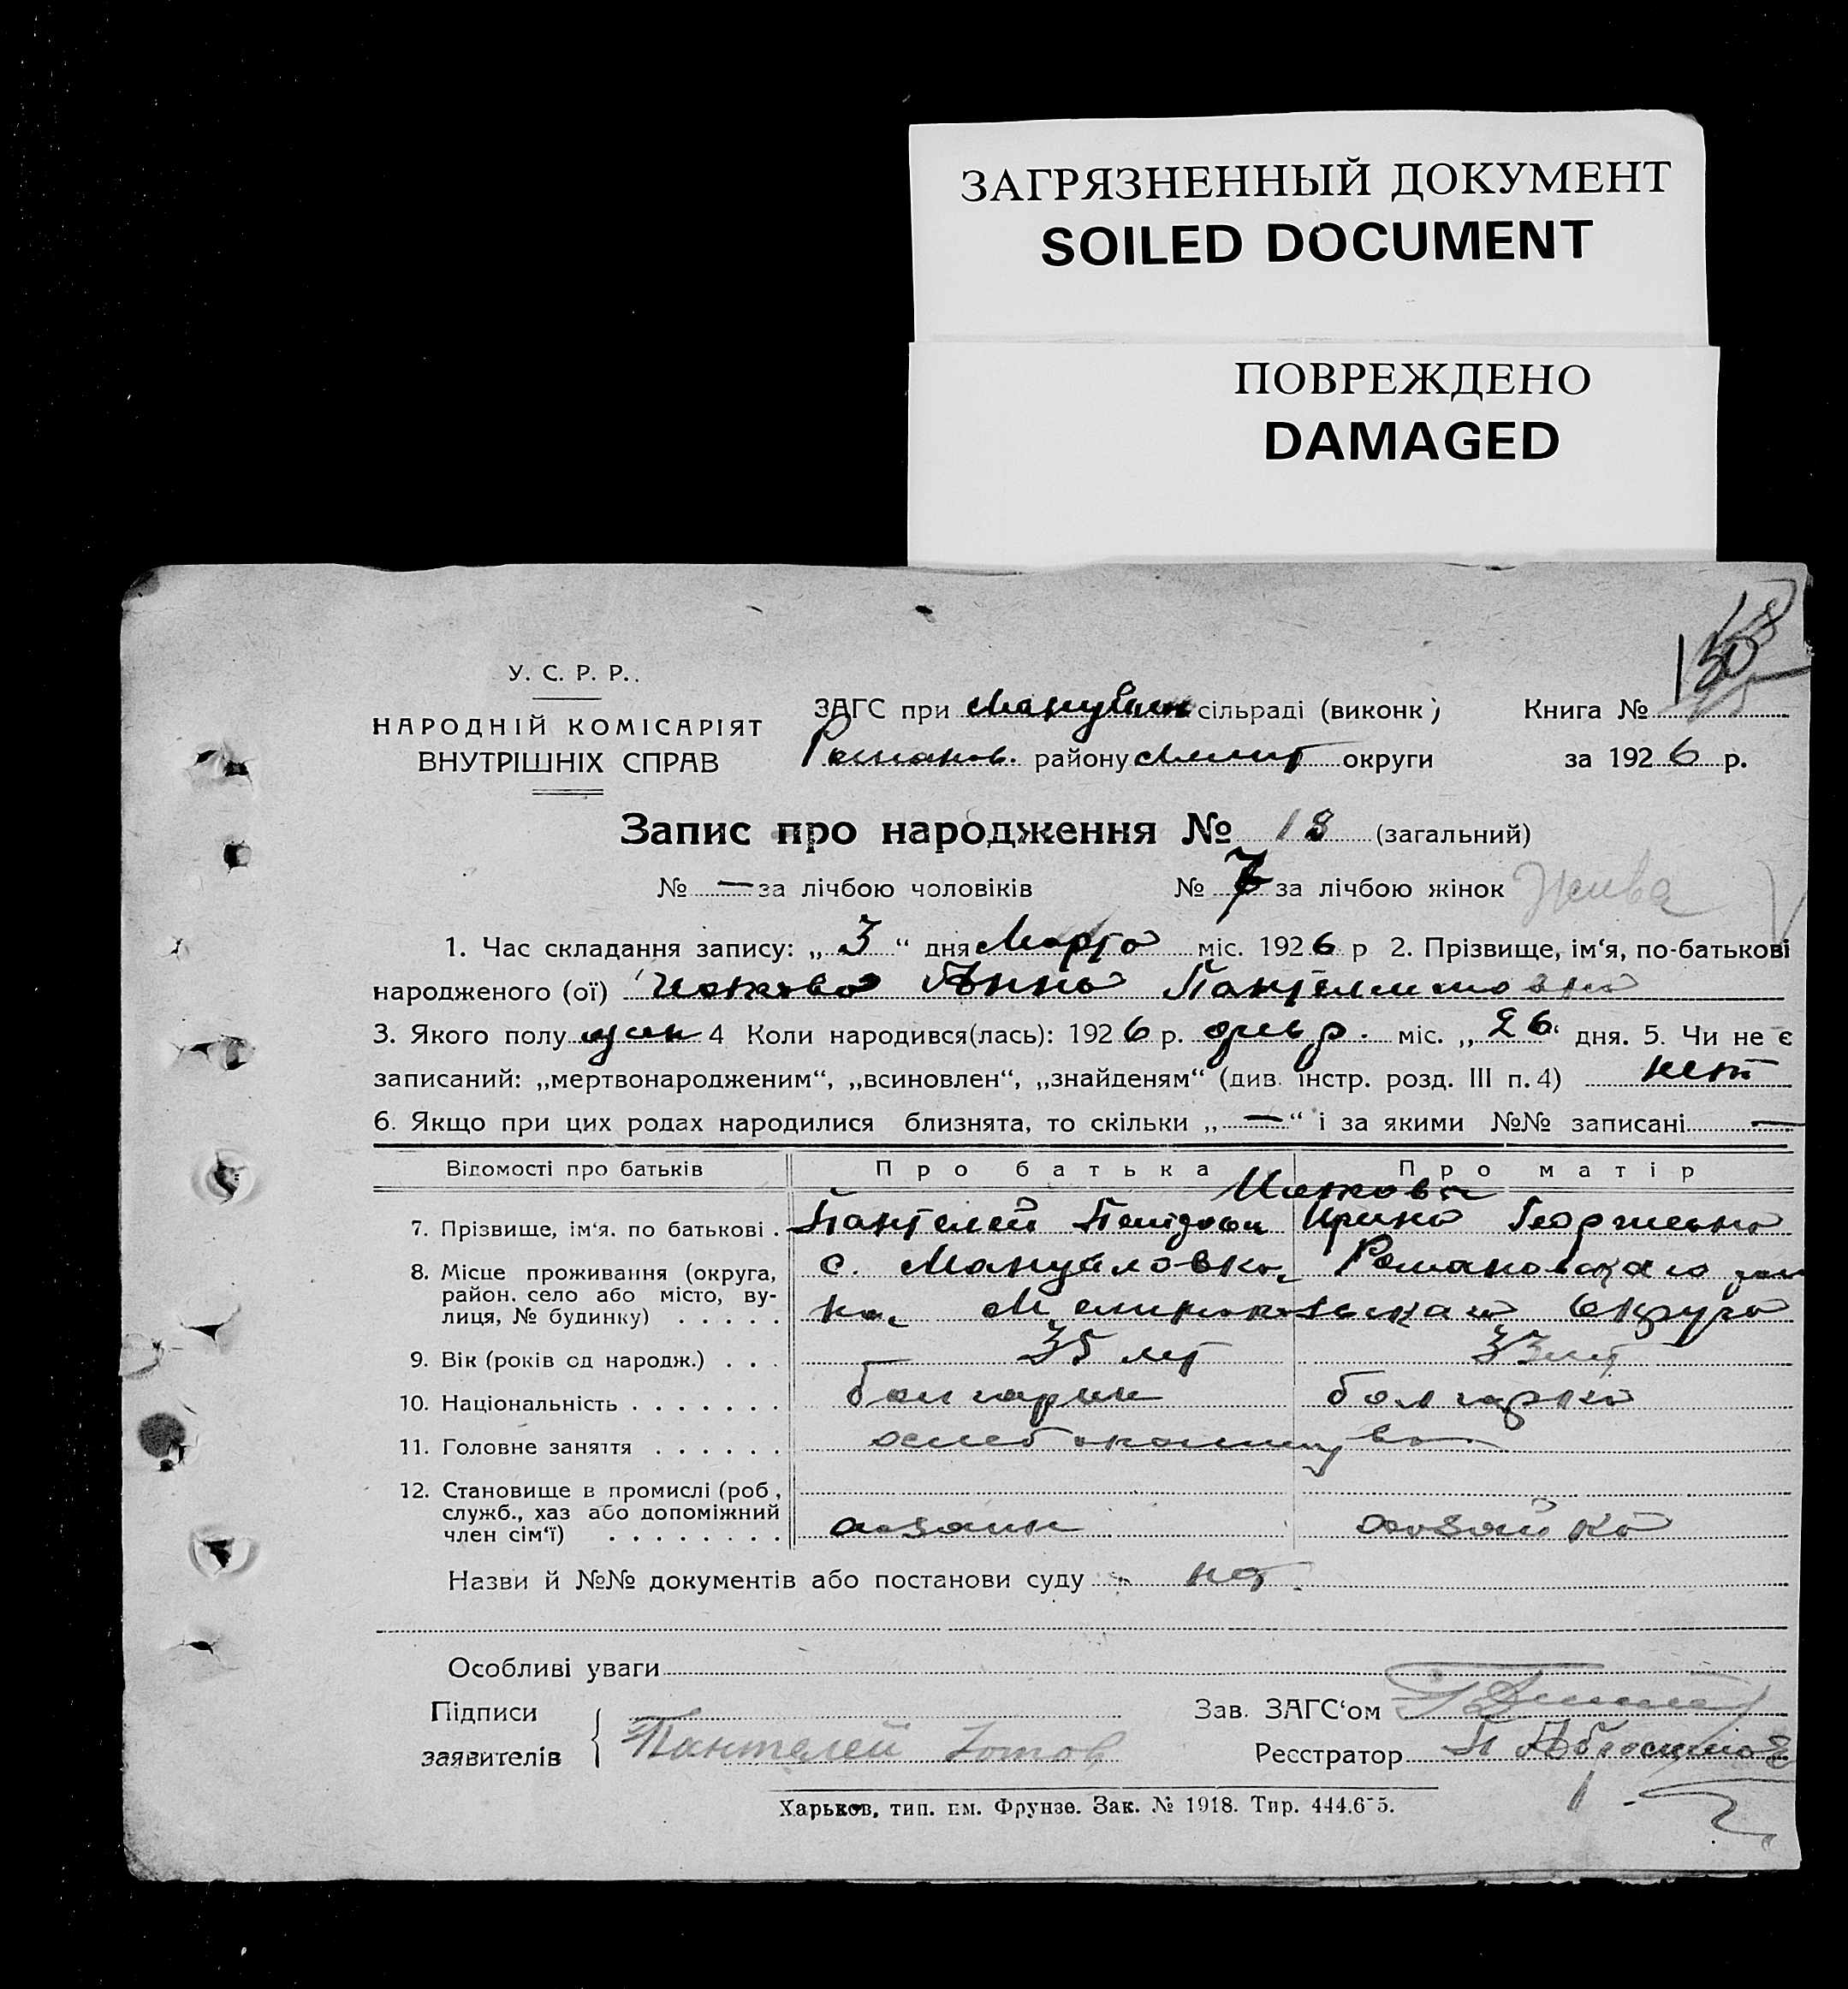 ЗАГРЯЗНЕННЫЙ ДОКУМЕНТ
SOILED DOCUMENT
ПОВРЕЖДЕНО
DAMAGED
У. С. Р. Р.
НАРОДНІЙ КОМІСАРІЯТ
ВНУТРІШНІХ СПРАВ
ЗАГС при сільраді (виконк)
Книга №
Романов. району Мелит округи
за 1926 р.
Запис про народження № 18 (загальний)
№ — за лічбою чоловіків № 7 за лічбою жінок Жива
1. Час складання запису: „3“ дня Марта міс. 1926 р 2. Прізвище, ім‘я, по-батькові
народженого (ої) Анна Пантелимовна
3. Якого полу жен 4 Коли народився(лась): 1926 р. февр. міс. „26“ дня. 5. Чи не є
записаний: „мертвонародженим“, „всиновлен“, „знайденям“ (див. інстр. розд. III п. 4) нет
6. Якщо при цих родах народилися близнята, то скільки „—“ і за якими №№ записані —
Відомості про батьків Про батька Про матір
7. Прізвище, ім‘я. по батькові . Пантелей Ирина Георгиевна
8. Місце проживання (округа, с. Мануйловка, Романовского
район. село або місто, ву-
лиця, № будинку) . . . . . Мелитопольской округа
9. Вік (років од народж.) . . . 35 лет 33 лет
10. Національність . . . . . . . болгарин болгарка
11. Головне заняття . . . . . . хлебопашество
12. Становище в промислі (роб,
служб., хаз або допоміжний
член сім‘ї) . . . . . . . . хозяин хозяйка
Назви й №№ документів або постанови суду нет.
Особливі уваги
Підписи
Зав. ЗАГС‘ом
заявителів Пантелей
Реєстратор
Харьков, тип. им. Фрунзе. Зак. № 1918. Тир. 444.675.